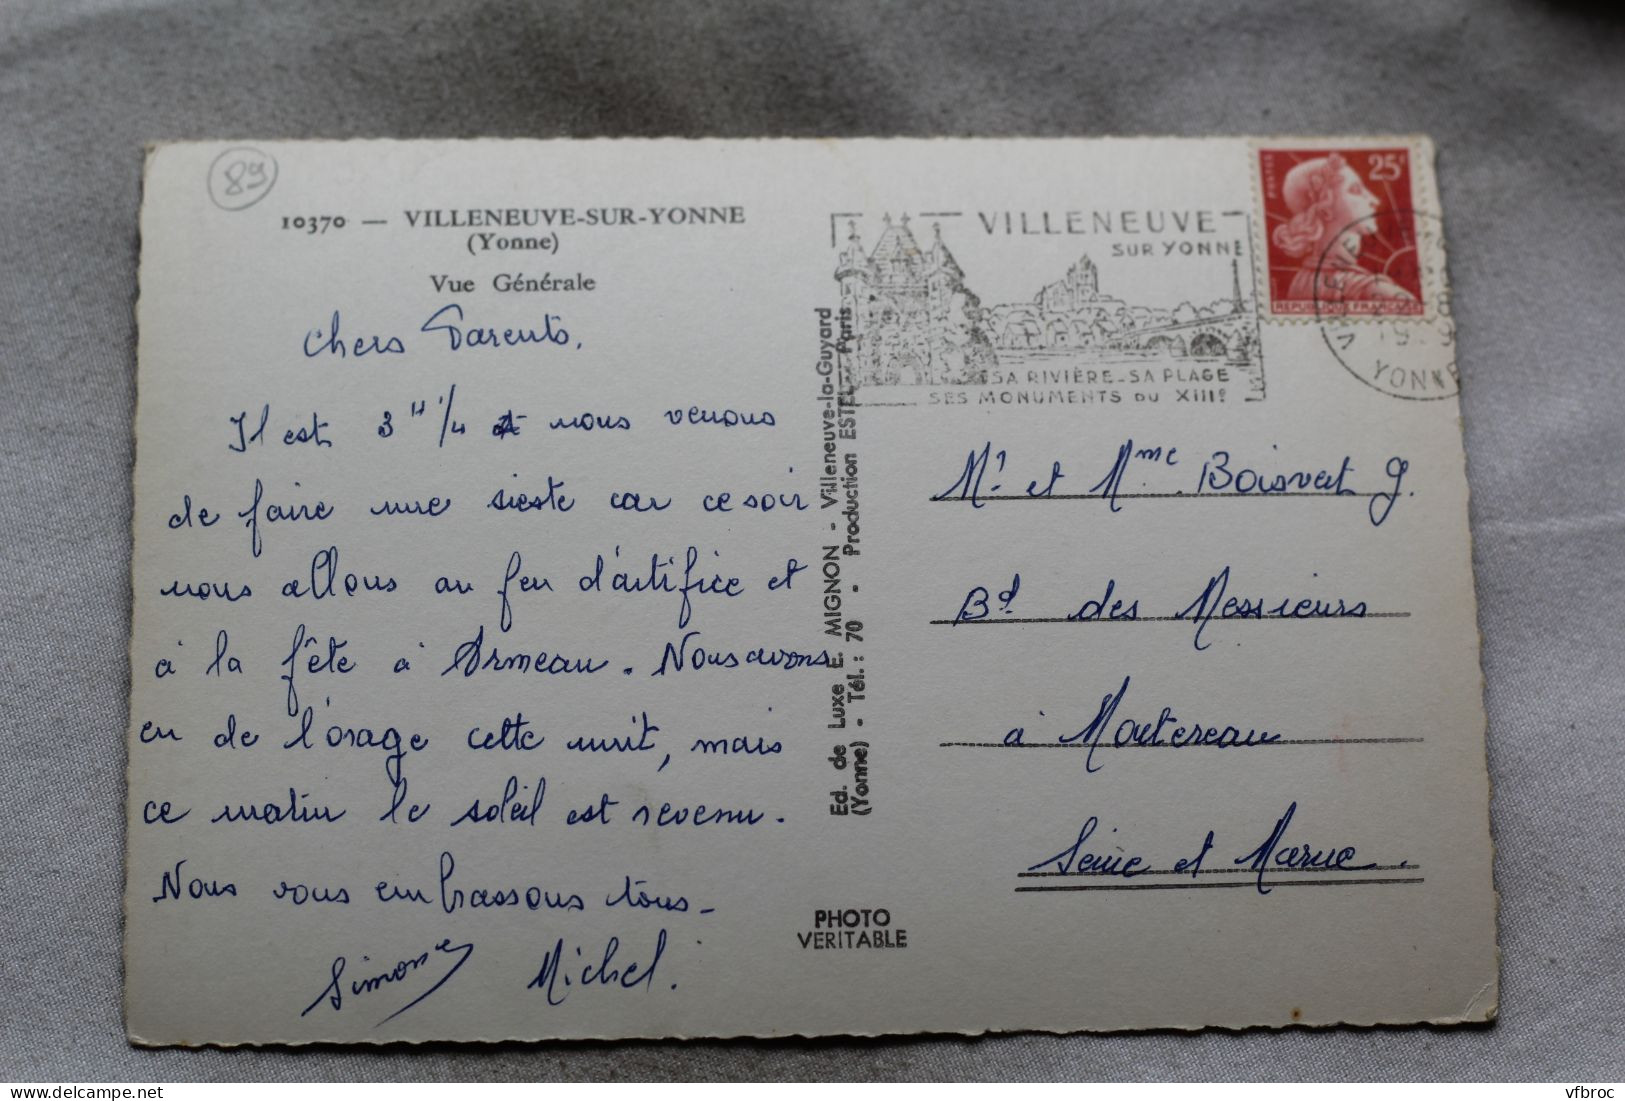 89
10370 — VILLENEUVE-SUR-YONNE
(Yonne)
Vue Générale
Chers Parents,
Il est 3 H 1/4 et nous venons
de faire une sieste car ce soir
nous allons au feu d'artifice et
à la fête à Armeau. Nous avons
eu de l'orage cette nuit, mais
ce matin le soleil est revenu.
Nous vous embrassons tous -
Simone Michel.
Ed. de Luxe E. MIGNON - Villeneuve-la-Guyard
(Yonne) - Tél. : 70 - Production ESTEL - Paris
PHOTO
VERITABLE
VILLENEUVE
SUR YONNE
SA RIVIÈRE - SA PLAGE
SES MONUMENTS DU XIIIe
POSTES
25F
REPUBLIQUE FRANÇAISE
YONNE
Mr et Mme Boisvert G.
Bd des Messieurs
à Montereau
Seine et Marne.
vfbroc